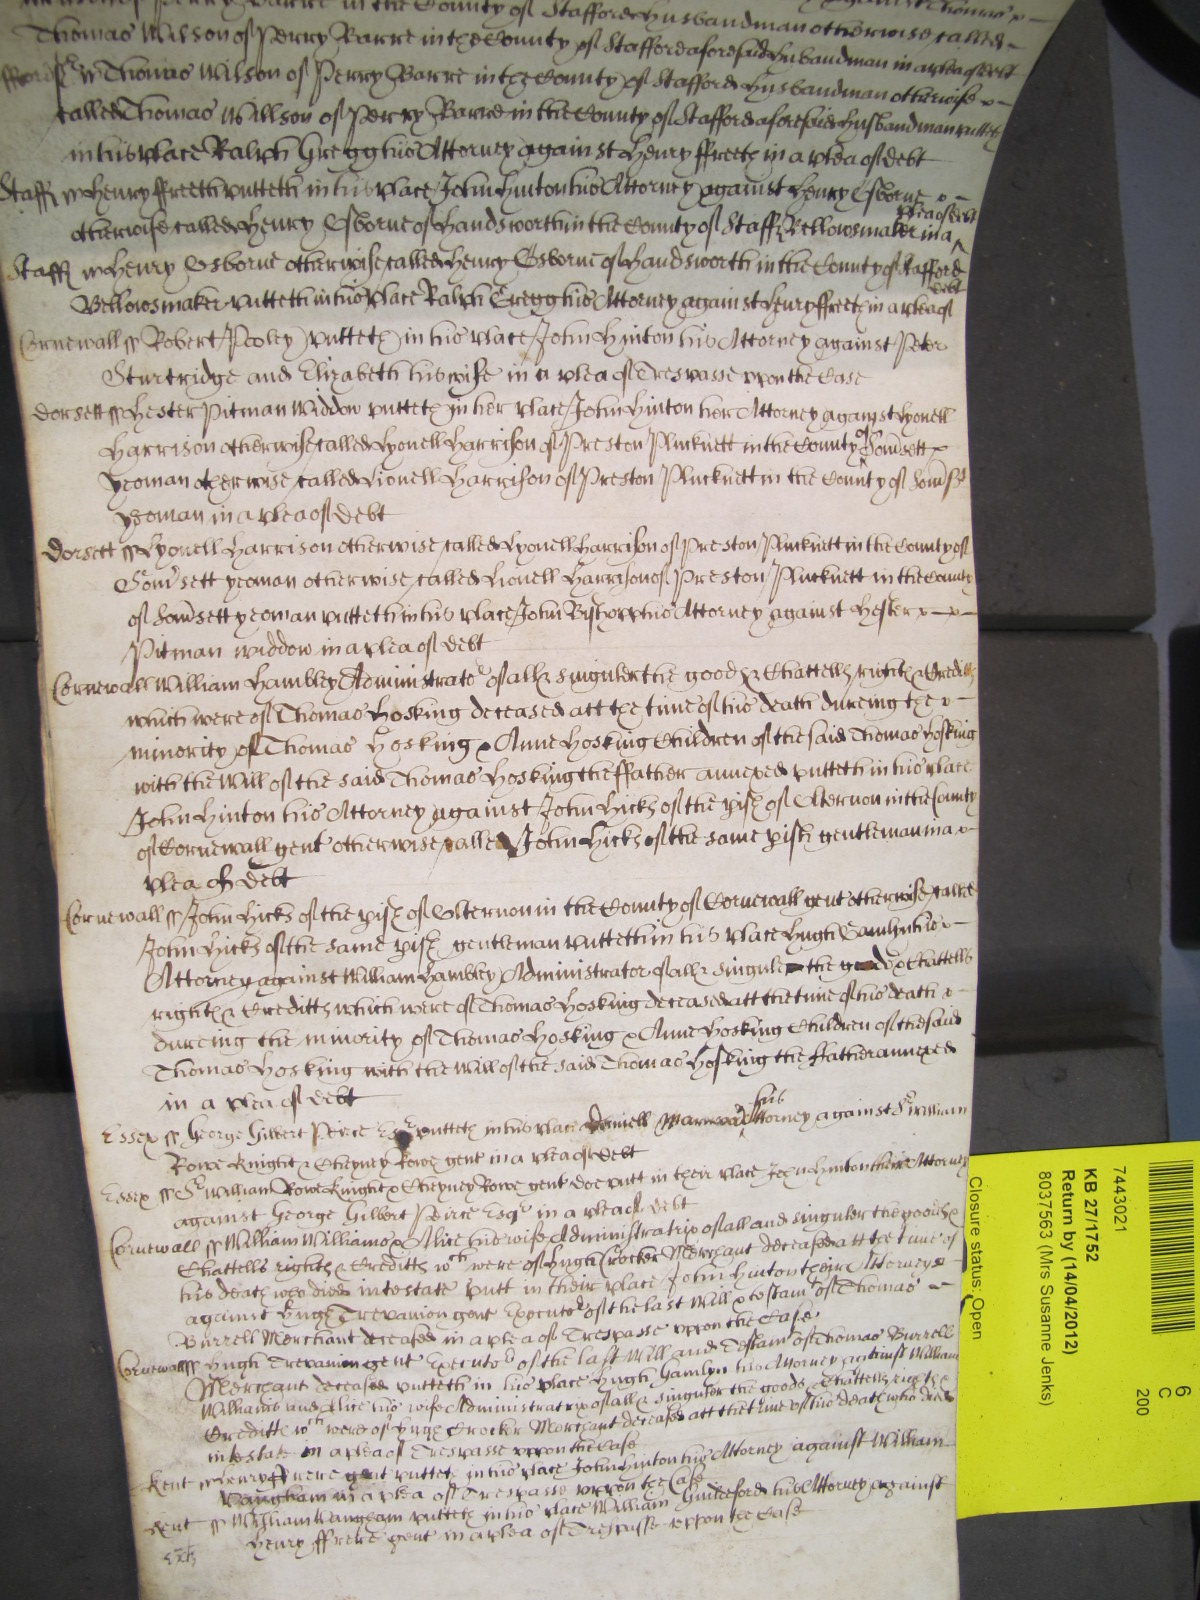 Perry Barre in the County of Stafford husbandman otherwise called
Thomas Wilson of Perry Barre in the County of Stafford aforesaid husbandman in a plea of debt
Thomas Wilson of Perry Barre in the County of Stafford husbandman otherwise
called Thomas Willson of Perry Barre in the County of Stafford aforesaid husbandman putteth
in his place Ralph Gregg his Attorney against Henry ffreeth in a plea of debt
Staff ss Henry ffreeth putteth in his place John Hinton his Attorney against Henry Osborne
otherwise called Henry Osborne of Handsworth in the County of Staff Bellowsmaker in a plea of debt
Staff ss Henry Osborne otherwise called Henry Osborne of Handsworth in the County of Stafford
Bellowsmaker putteth in his place Ralph Gregg his Attorney against Henry ffreeth in a plea of debt
Cornewall ss Robert Pooley putteth in his place John Hinton his Attorney against Peter
Sturtridge and Elizabeth his wife in a plea of Trespasse upon the Case
Dorsett ss Hester Pitman Widdow putteth in her place John Hinton her Attorney against Lyonell
Harrison otherwise called Lyonell Harrison of Preston Plucknett in the County of Somsett
yeoman otherwise called Lionell Harrison of Preston Plucknett in the County of Somsett
yeoman in a plea of debt
Dorsett ss Lyonell Harrison otherwise called Lyonell Harrison of Preston Plucknett in the County of
Somsett yeoman otherwise called Lionell Harrison of Preston Plucknett in the County
of Somsett yeoman putteth in his place John Bishopp his Attorney against Hester
Pitman widdow in a plea of debt
Cornewall William Hambley Administrator of all & singuler the goods & Chattells rights & Creditts
which were of Thomas Hosking deceased att the time of his death dureing the
minority of Thomas Hosking & Anne Hosking Children of the said Thomas Hosking
with the Will of the said Thomas Hosking the ffather annexed putteth in his place
John Hinton his Attorney against John Hicks of the pish of Alternon in the County
of Cornewall gent otherwise called John Hicks of the same pish gentleman in a
plea of debt
Cornewall ss John Hicks of the pish of Alternon in the County of Cornewall gent otherwise called
John Hicks of the same pish gentleman putteth in his place Hugh Hamlyn his
Attorney against William Hambley Administrator of all & singuler the goods & Chattells
rights & Creditts which were of Thomas Hosking deceased att the time of his death
dureing the minority of Thomas Hosking & Anne Hosking Children of the said
Thomas Hosking with the Will of the said Thomas Hosking the ffather annexed
in a plea of debt
Essex ss George Gilbert Peirce Esqr putteth in his place Daniell his Attorney against Sr William
Rowe Knight & Cheyney Rowe gent in a plea of debt
Essex ss Sr William Rowe Knight & Cheyney Rowe gent doe putt in their place John Hinton their Attorney
against George Gilbert Peirce Esqr in a plea of debt
Cornewall ss William Williams & Alice his wife Administratrix of all and singuler the goods &
Chattells rights & Creditts wch were of Hugh Crocker Merchant deceased att the time of
his death who died intestate putt in their place John Hinton their Attorney
against Hugh Trevanion gent Executor of the last Will & testamt of Thomas
Burrell Merchant deceased in a plea of Trespasse uppon the Case
Cornewall ss Hugh Trevanion gent Executor of the last Will and Testamt of Thomas Burrell
Merchant deceased putteth in his place Hugh Hamlyn his Attorney against William
Williams and Alice his wife Administratrix of all & singuler the goods & Chattells rights &
Creditts wch were of Hugh Crocker Merchant deceased att the time of his death who died
intestate in a plea of Trespasse uppon the Case
Kent ss Henry ffrere gent putteth in his place John Hinton his Attorney against William
Vaugham in a plea of Trespasse uppon the Case
Kent ss William Vaugham putteth in his place William Guildeford his Attorney against
Henry ffrere gent in a plea of Trespasse uppon the Case
7443021
KB 27/1752
Return by (14/04/2012)
8037563 (Mrs Susanne Jenks)
Closure status: Open
6
C
200